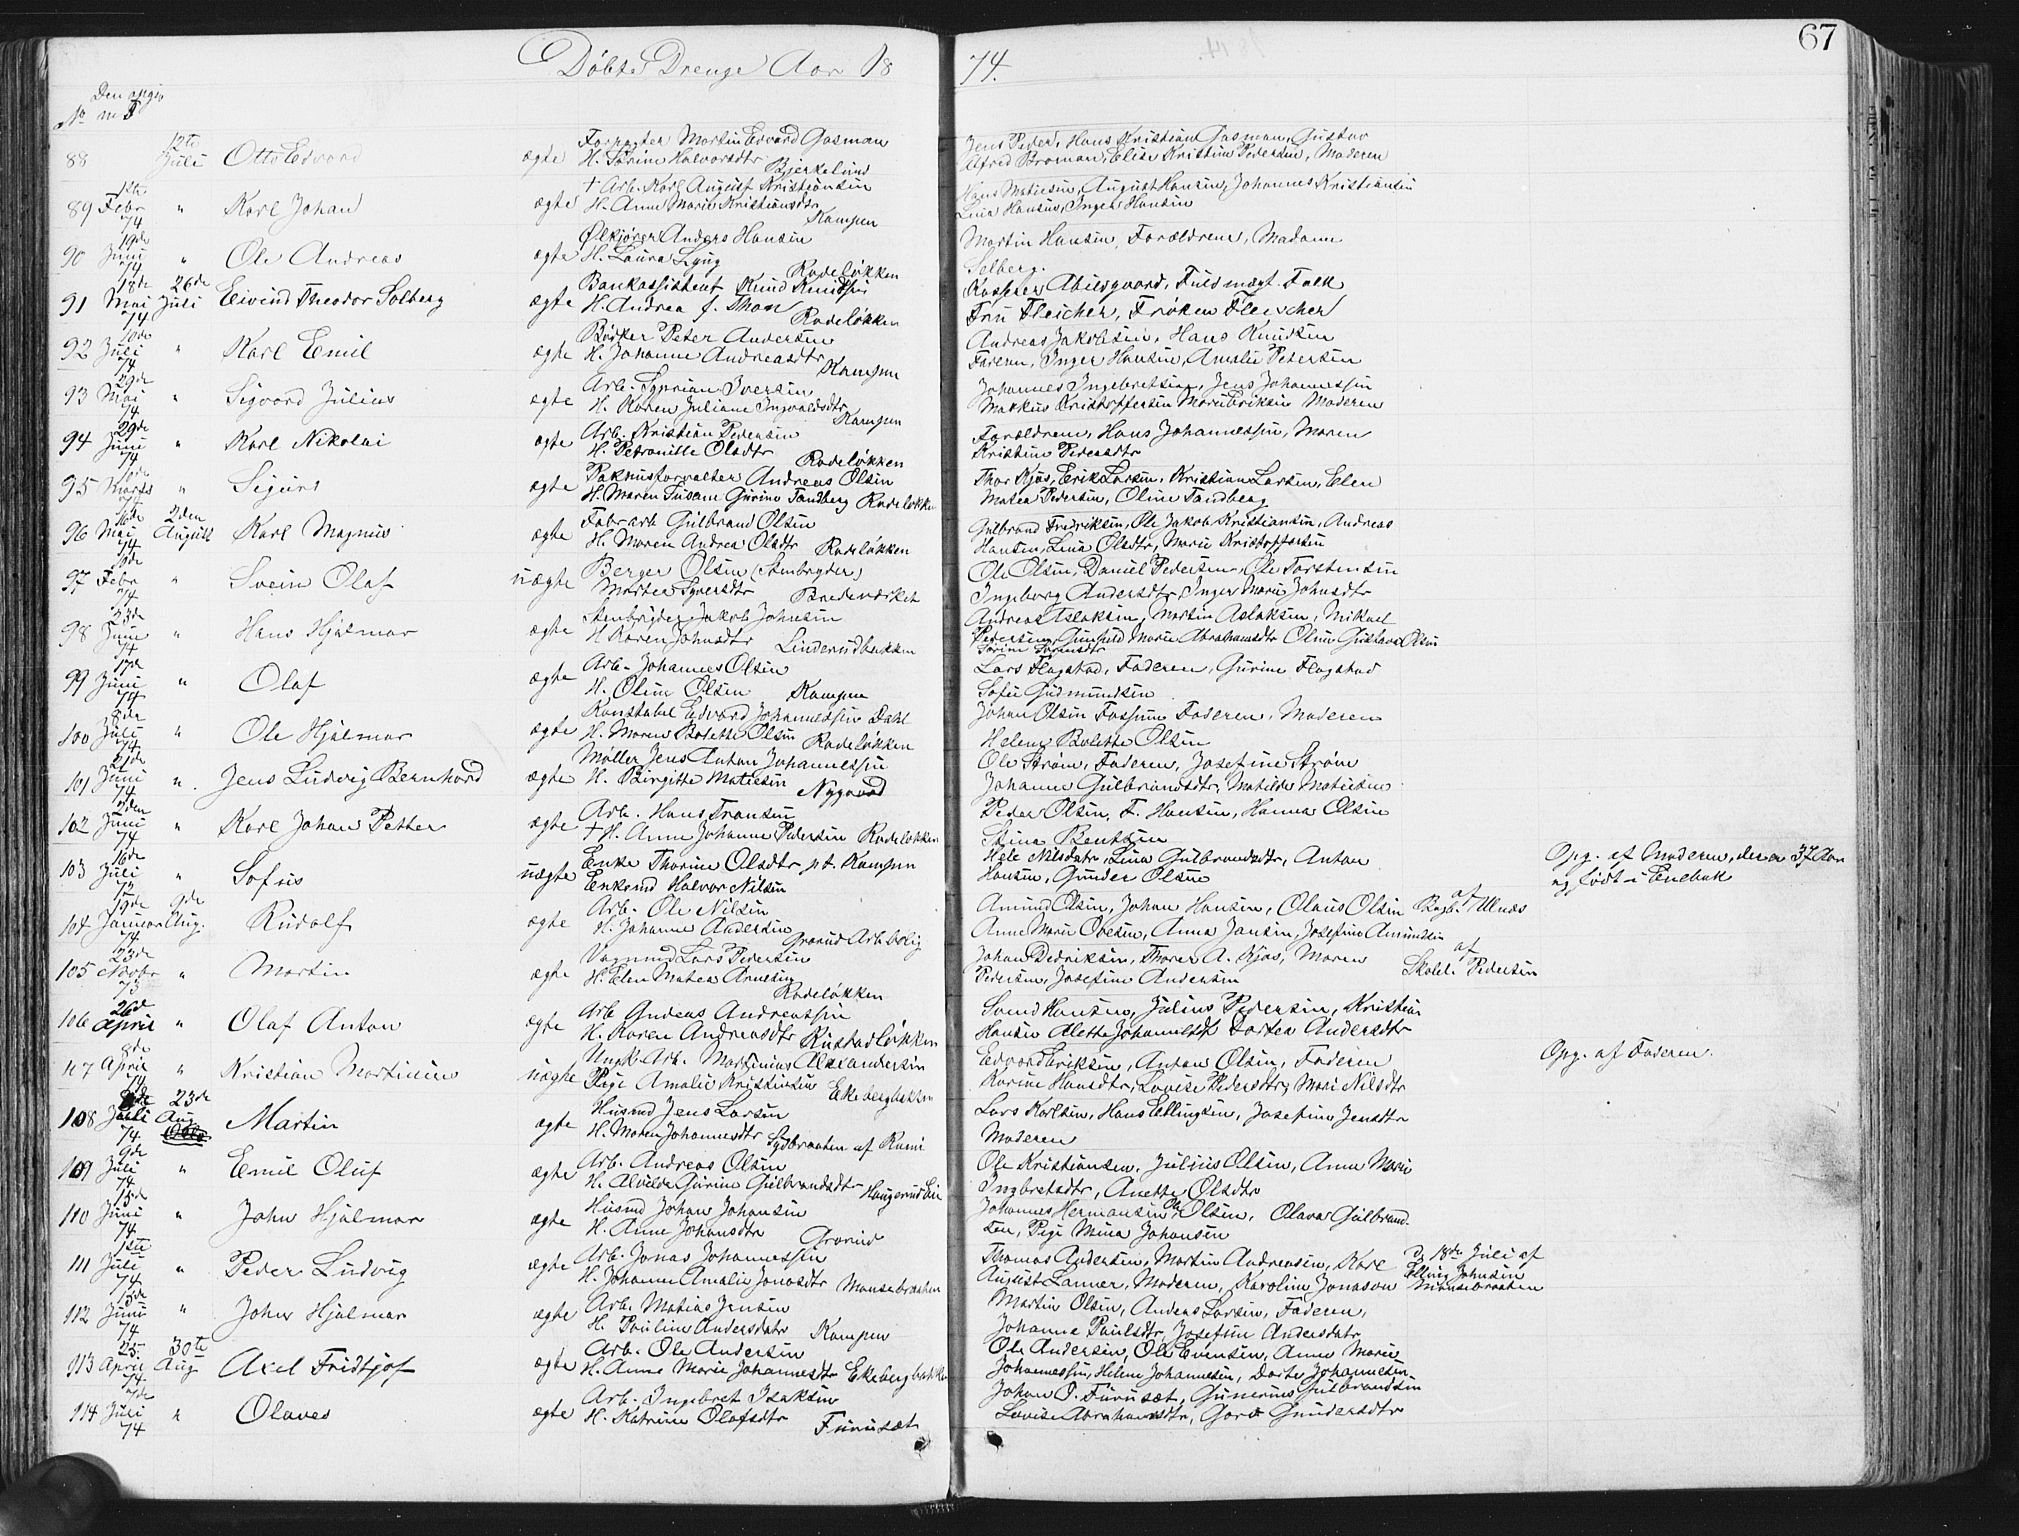 Døbte Drenge Aar 18
74.
67
No
88 12te Juli Otto Edvard ægte Forpagter Martin Edvard Gasman
H. Karine Halvorsdtr Bjerkelund
Jens Peder, Hans Kristian Gasman, Gustav
Alfred Broman, Elise Kristine Pedersen, Moderen
89 1ste Febr 74 " Karl Johan ægte † Arb. Karl August Kristiansen
H. Anne Marie Kristiansdtr Kampen
Hans Matiesen, August Hansen, Johannes Kristiansen
Lina Hansen, Inger Hansen
90 19de Juni 74 " Ole Andreas ægte Ølkjører Anders Hansen
H. Laura Lyng Rodeløkken
Martin Hansen, Forældrene, Madam
Selberg.
91 18de Mai 74 26de Juli Eivind Theodor Solberg ægte Bankassistent Knud Knudsen
H. Andrea f. Thon Rodeløkken
Kasserer Abilsgaard, Fuldmægt. Falk
Fru Fleicher, Frøken Fleischer
92 10de Juli 74 " Karl Emil ægte Bødker Peter Andersen
H. Johanne Andreasdtr Kampen
Andreas Jakobsen, Hans Knudsen
Faderen, Inger Hansen, Amalie Petersen
93 29de Mai 74 " Sigvard Julius ægte Arb. Syprian Iversen
H. Karen Juliane Ingvaldsdtr Kampen
Johannes Ingebretsen, Jens Johannessen
Markus Kristoffersen Marie Eriksen Moderen
94 29de Juni 74 " Karl Nikolai ægte Arb. Kristian Pedersen
H. Petronille Olsdtr Rodeløkken
Forældrene, Hans Johannessen, Maren
Kristine Pedersdtr
95 Marts " Sigurd ægte Pakhusforvalter Andreas Olsen
H. Maren Susane Gurine Tandberg Rodeløkken
Thor Kjøs, Erik Larsen, Kristian Larsen, Elen
Matea Pedersen, Oline Tandberg
96 16de Mai 74 2den August Karl Magnus ægte Fabr arb Gulbrand Olsen
H. Maren Andrea Olsdtr Rodeløkken
Gulbrand Fredriksen, Ole Jakob Kristiansen, Andreas
Hansen, Lina Olsdtr, Marie Kristoffersen
97 Febr 74 " Svein Olaf uægte Berger Olsen (Stenbryder)
Marte Syversdtr Bredevedsket
Ole Olsen, Daniel Pedersen, Ole Torstensen
Ingeborg Andersdtr, Inger Marie Johnsdtr
98 23de Juni 74 " Hans Hjalmar ægte Stenbryder Jakob Johnsen
H Karen Johnsdtr Linderudbakken
Andreas Aslaksen, Martin Aslaksen, Mikael
Pedersen, Gunhild Marie Abrahamsdtr Oline Gustava Olsen
99 17de Juni 74 " Olaf ægte Arb. Johannes Olsen
H. Oline Olsen Kampen
Lars Flagstad, Faderen, Gurine Flagstad
Sofie Gudmundsen
100 8de Juli 74 " Ole Hjalmar ægte Konstabel Edvard Johannessen Dahl
H. Maren Bolette Olsen Rodeløkken
Johan Olsen Fossum Faderen, Moderen
Helene Bolette Olsen
101 21de Juni 74 " Jens Ludvig Bernhard ægte Møller Jens Anton Johannessen
H. Birgitte Matiesen Nygaard
Ole Strøm, Faderen, Josefine Strøm
Johanne Gulbrandsdtr, Matilde Matiesen
102 2den Juni 74 " Karl Johan Petter ægte Arb. Hans Fransen
† H. Anne Johanne Pedersen Rodeløkken
Peder Olsen, F. Hansen, Hanna Olsen
Stina Bentsen
103 16de Juli 73 " Sofus uægte Enke Thorine Olsdtr pt. Kampen
Enkemd Halvor Nilsen
Hele Nilsdatr, Lina Gulbrandsdtr, Anton
Hansen, Gunder Olsen
Opg. af Moderen, der er 37 Aar
og født i Enebak
104 19de Januar 74 9de Aug. Rudolf ægte Arb. Ole Nilsen
H. Johanne Andersen Grorud Arb.bolig
Amund Olsen, Johan Hansen, Olaus Olsen
Anne Marie Ovesen, Anna Jansen, Josefine Amundsen
af Ullnæs
105 23de Novbr 73 " Martin ægte Vognmd Lars Pedersen
H. Elen Matea Arnesen Rodeløkken
Johan Dedriksen, Thorer A. Kjøs, Maren
Pedersen, Josefine Andersen
af Skolel. Pedersen
106 26de April " Olaf Anton ægte Arb Andreas Andreassen
H. Karen Andreasdtr Rustadløkken
Svend Hansen, Julius Pedersen, Kristian
Hansen Alette Johannesdtr Dortea Andersdtr
107 8de April 74 " Kristian Martinius uægte Ungk. Arb. Martinius Alexandersen
Pige Amalie Kristensen Ekebergbakken
Edvard Eriksen, Anton Olsen, Faderen
Karine Hansdtr, Lovise Pedersdtr, Mari Nilsdtr
Opg. af Faderen.
108 Juli 74 23de Aug Martin ægte Husmd Jens Larsen
H. Maren Johannesdtr Sydbraaten af Rusni
Lars Karlsen, Hans Ellingsen, Josefine Jensdtr
Moderen
109 9de Juli 74 " Emil Oluf ægte Arb. Andreas Olsen
H. Alvilde Gurine Gulbrandsdtr Haugerud Eie
Ole Kristiansen, Julius Olsen, Anne Marie
Ingbretsdtr, Anette Olsdtr
110 15de Juni 74 " John Hjalmar ægte Husmd Johan Johansen
H. Anne Johansdtr Grorud
Johannes Hermansen, Ole Olsen, Olava Gulbrand-
sen, Pige Mina Johansen
111 1ste Juli 74 " Peder Ludvig ægte Arb. Jonas Johannessen
H. Johanne Amalie Jonasdtr Monsebraaten
Thomas Andersen, Martin Andreasen, Karl
August Larmer, Moderen, Karoline Jonason
D. 18de Juli af
Elling Johnsen
Monsebraaten
112 15de Juni 74 " John Hjalmar ægte Arb. Matias Jensen
H. Pauline Andersdatr Kampen
Martin Olsen, Anders Larsen, Faderen,
Johanne Paulsdtr, Josefine Andersdatr
113 25. April 74 30te Aug Axel Fridtjof ægte Arb. Ole Andersen
H. Anne Marie Johannesdtr Ekebergbakken
Ole Andersen, Ole Evensen, Anne Marie
Johannessen, Helene Johannesen, Dorte Johannesen
114 7de Juli 74 " Olaves ægte Arb. Ingebret Isaksen
H. Katrine Olafsdtr Furuset
Johan O. Furuset, Gunerius Gulbrandsen
Lovise Abrahamsdtr, Goro Gundersdtr